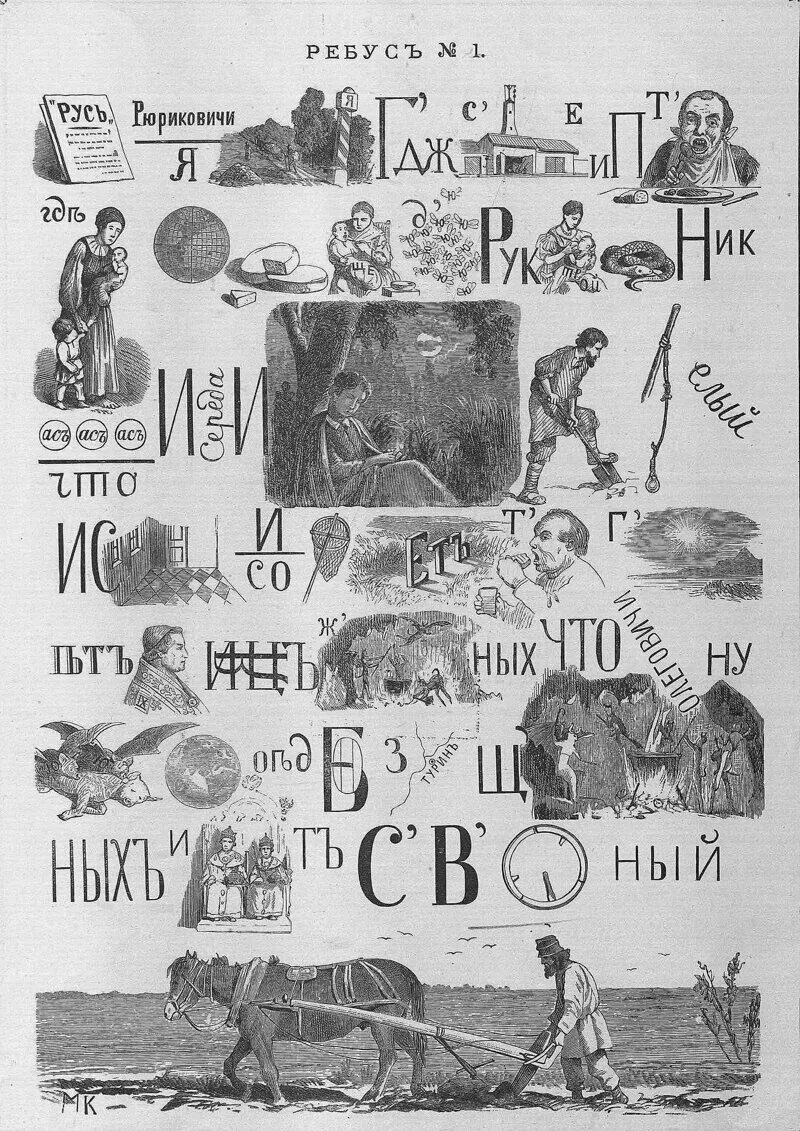 РЕБУСЪ № 1.
"РУСЬ„ Рюриковичи Я Я Г' ДЖ С' Е и П Т'
гдѣ ЩЕ д' Ю Ю Ю Рук Ник
И середа И елый
асъ асъ асъ
что
ИС И СО Етъ Т' Г'
ѣтъ IX ИЦЪ Ж' ных ЧТО ОЛЕГОВИЧИ НУ
огѣд Б З ТУРИНЪ Щ
НЫХЪ И ТЬ С' В' НЫЙ
МК